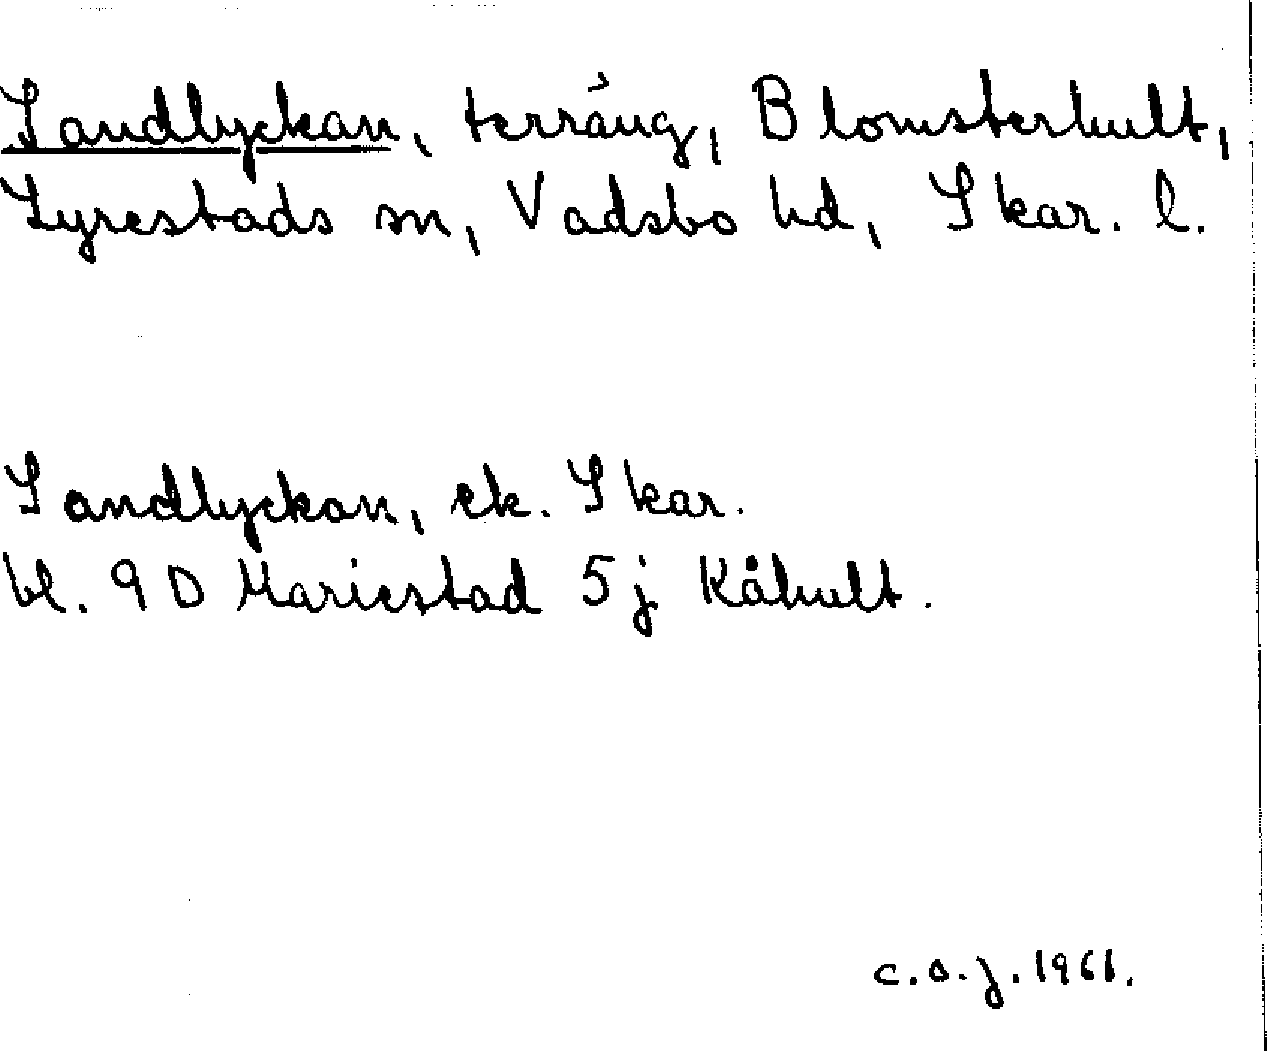 Sandlyckan, terräng, Blomsterhult,
Lyrestads sn, Vadsbo hd, Skar. l.
Sandlyckan, ek. Skar.
bl. 9D Mariestad 5j Kåhult.
c.o.j. 1961.